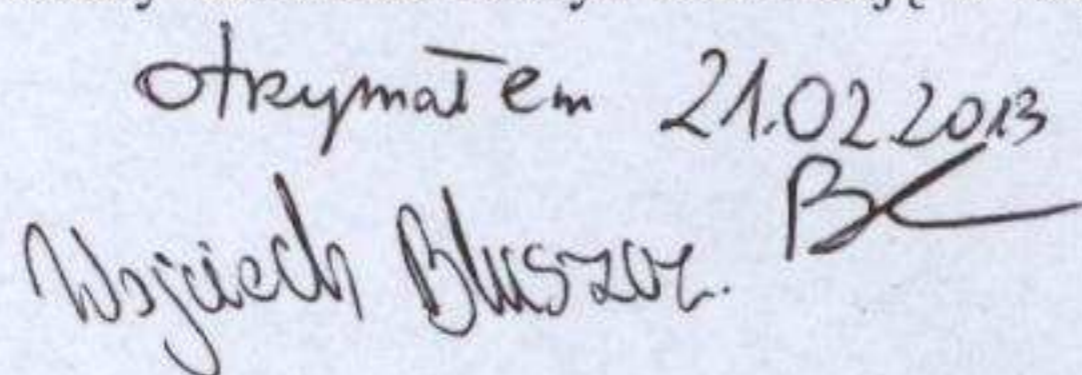 Otrzymałem 21.02.2013
Wojciech Bluszcz.